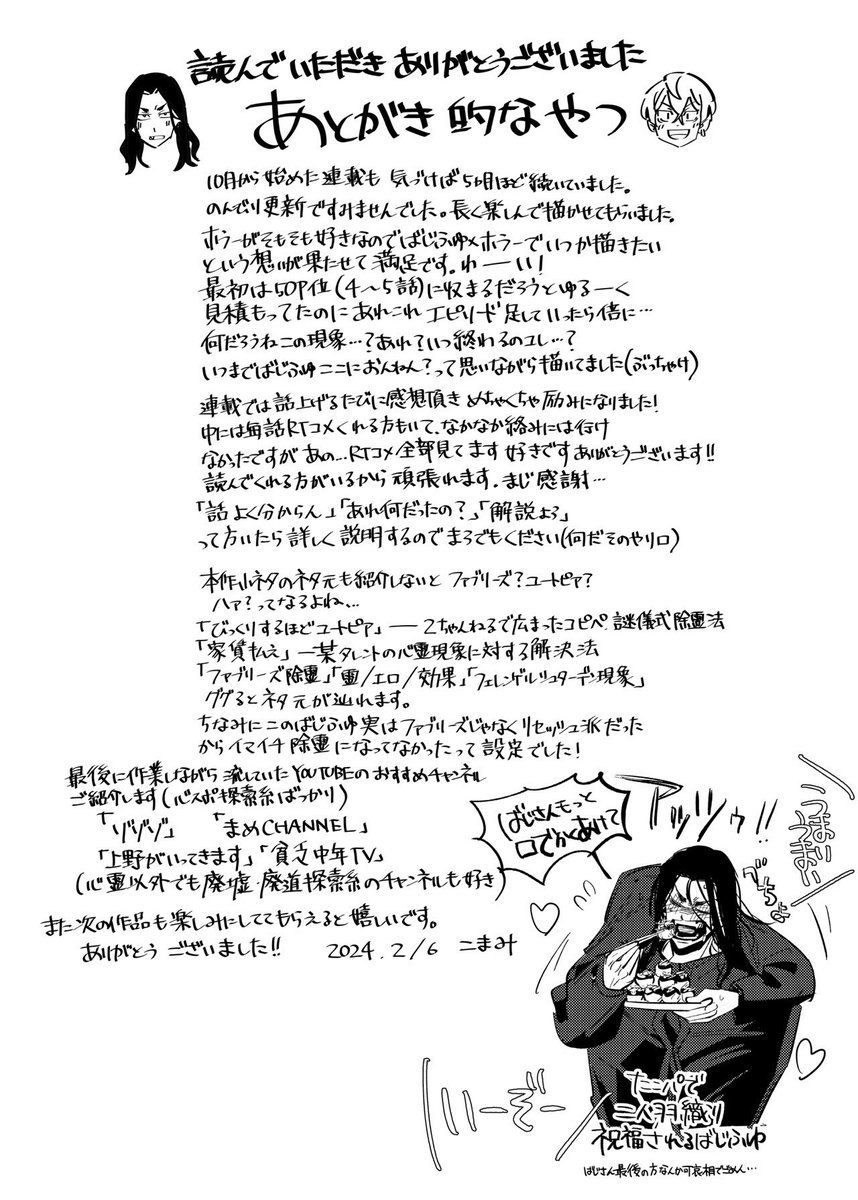 読んでいただき ありがとうございました
あとがき的なやつ
10月から始めた連載も 気づけば5ヶ月ほど続いていました。
のんびり更新ですみませんでした。長く楽しんで描かせてもらいました。
ホラーがそもそも好きなのでばじふゆ×ホラーでいつか描きたい
という想いが果たせて満足です。わーい!
最初は50P位(4〜5話)に収まるだろうとゆるーく
見積もってたのに あれこれエピソード足していったら倍に…
何だろうねこの現象…?あれ?いつ終わるのコレ…?
いつまでばじふゆここにおんねん?って思いながら描いてました(ぶっちゃけ)
連載では話上げるたびに感想頂き めちゃくちゃ励みになりました!
中には毎話RTコメくれる方もいて、なかなか絡みには行け
なかったですが あの…RTコメ全部見てます 好きです ありがとうございます!!
読んでくれる方がいるから頑張れます。まじ感謝…
「話よく分からん」「あれ何だったの?」「解説よろ」
って方いたら詳しく説明するのでまろでもください(何だそのやり口)
本作小ネタのネタ元も紹介しないと ファブリーズ?ユートピア?
ハァ?ってなるよね…
「びっくりするほどユートピア」──2ちゃんねるで広まったコピペ 謎儀式除霊法
「家賃払え」─某タレントの心霊現象に対する解決法
「ファブリーズ除霊」「霊/エロ/効果」「フェレンゲルシュターデン現象」
ググるとネタ元が辿れます。
ちなみにこのばじふゆ実はファブリーズじゃなくリセッシュ派だった
からイマイチ除霊になってなかったって設定でした!
最後に作業しながら流していたYOUTUBEのおすすめチャンネル
ご紹介します(心スポ探索系ばっかり)
「ゾゾゾ」 「まめCHANNEL」
「上野がいってきます」「貧乏中年TV」
(心霊以外でも廃墟・廃道探索系のチャンネルも好き)
また次の作品も楽しみにしててもらえると嬉しいです。
ありがとうございました!! 2024.2/6 こまみ
ばじさんもっと
口でかくあけて
アッツゥ!!
ぐちょ
うまい
うまい
いーぞー
たこパで
二人羽織り
祝福されるばじふゆ
ばじさん最後の方なんか可哀相でごめん…